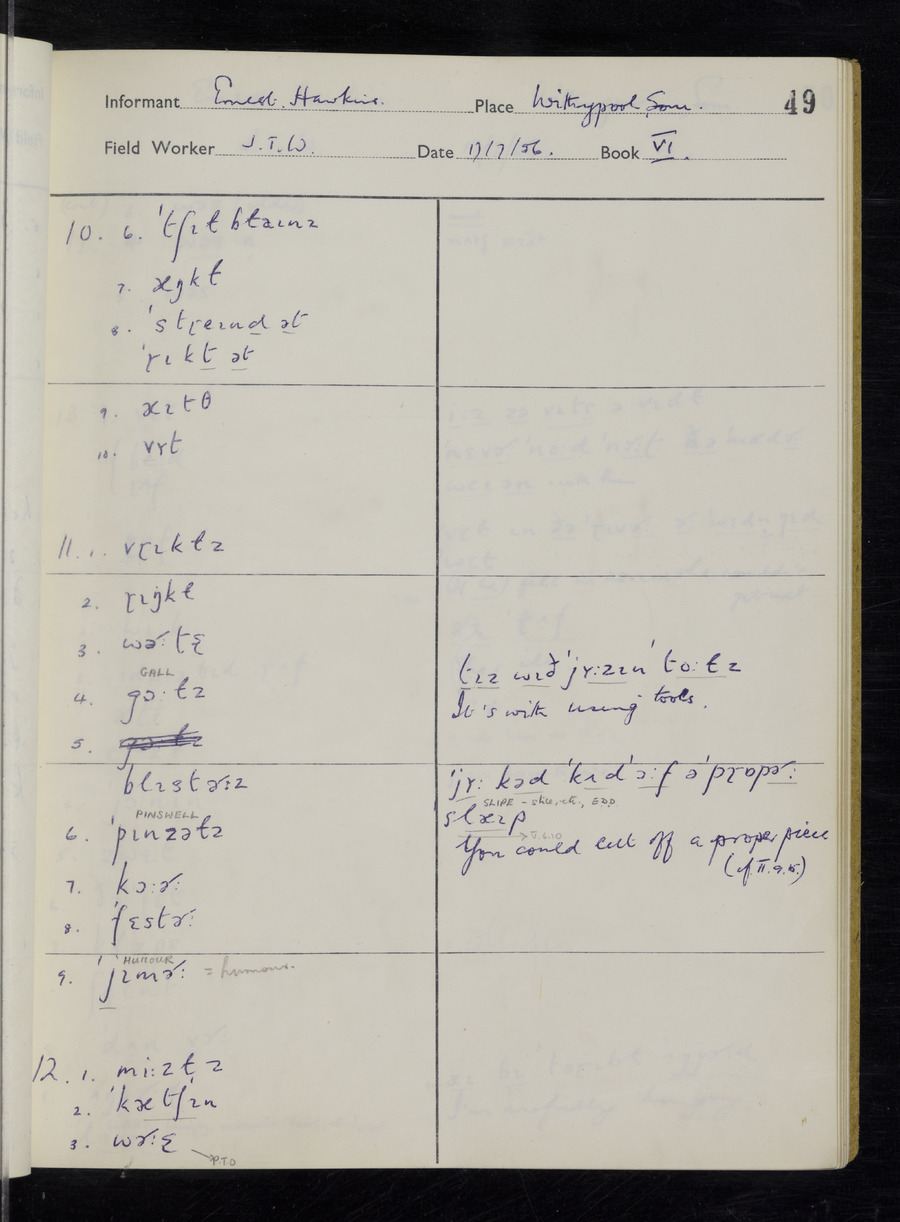 Informant Ernest Hawkins. Place Withypool, Som. 49
Field Worker J.T.W. Date 17/7/56. Book VI.
10. 6. ˈtʃɪɫbɫæɪnz
7. æŋkɫ
8. ˈstɽeɪnd ət
ˈɽɪkɫ ət
9. æɪɫθ
10. vɤɫ
11. 1. vɽɪkɫz
2. ɽɪŋkɫ
3. wəːtɛ
GALL
4. gɔːɫz
5.
blɪstəːz
PINSWELL
6. ˈpɪnzəɫz
7. kɔːɚː
8. ˈfɛstɚː
HUMOUR
9. ˈjɪmɚː = humour.
12. 1. miːzɫz
2. ˈkætʃɪn
3. wɚːɛ
P.T.O
tɪz wɪð ˈjʏːzɪn ˈtoːɫz
It's with using tools.
ˈjʏː kəd ˈkɪd ˈɔːf ə ˈpɽɒpɚː
SLIPE - slice, etc., EDD
slæɪp
→ V.6.10
You could cut off a proper piece
(cf. II.9.15.)